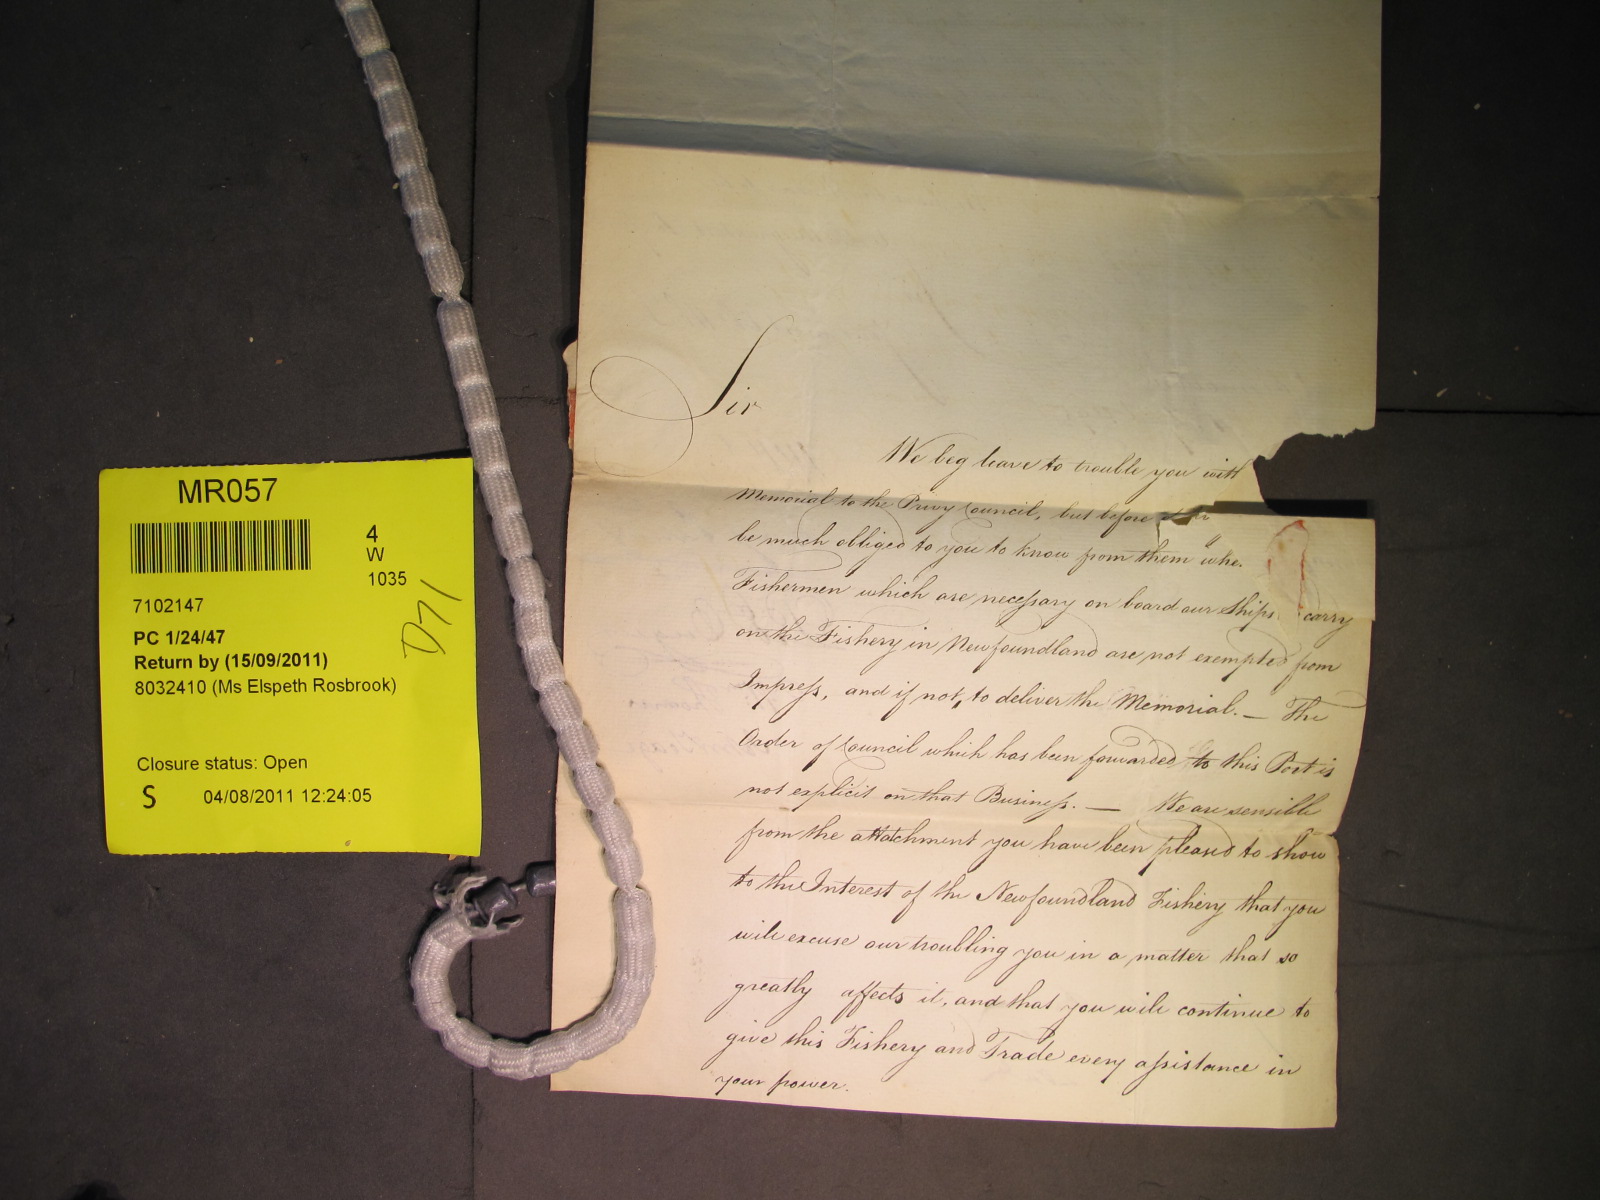 MR057
4
W
1035
7102147
PC 1/24/47
Return by (15/09/2011)
8032410 (Ms Elspeth Rosbrook)
D71
Closure status: Open
S 04/08/2011 12:24:05
Sir
We beg leave to trouble you with
Memorial to the Privy Council, but before
be much obliged to you to know from them whe
Fishermen which are necessary on board our Ships carry
on the Fishery in Newfoundland are not exempted from
Impress, and if not, to deliver the Memorial. — The
Order of Council which has been forwarded to this Port is
not explicit on that Business. — We are sensible
from the attatchment you have been pleased to show
to the Interest of the Newfoundland Fishery that you
will excuse our troubling you in a matter that so
greatly affects it, and that you will continue to
give this Fishery and Trade every assistance in
your power.